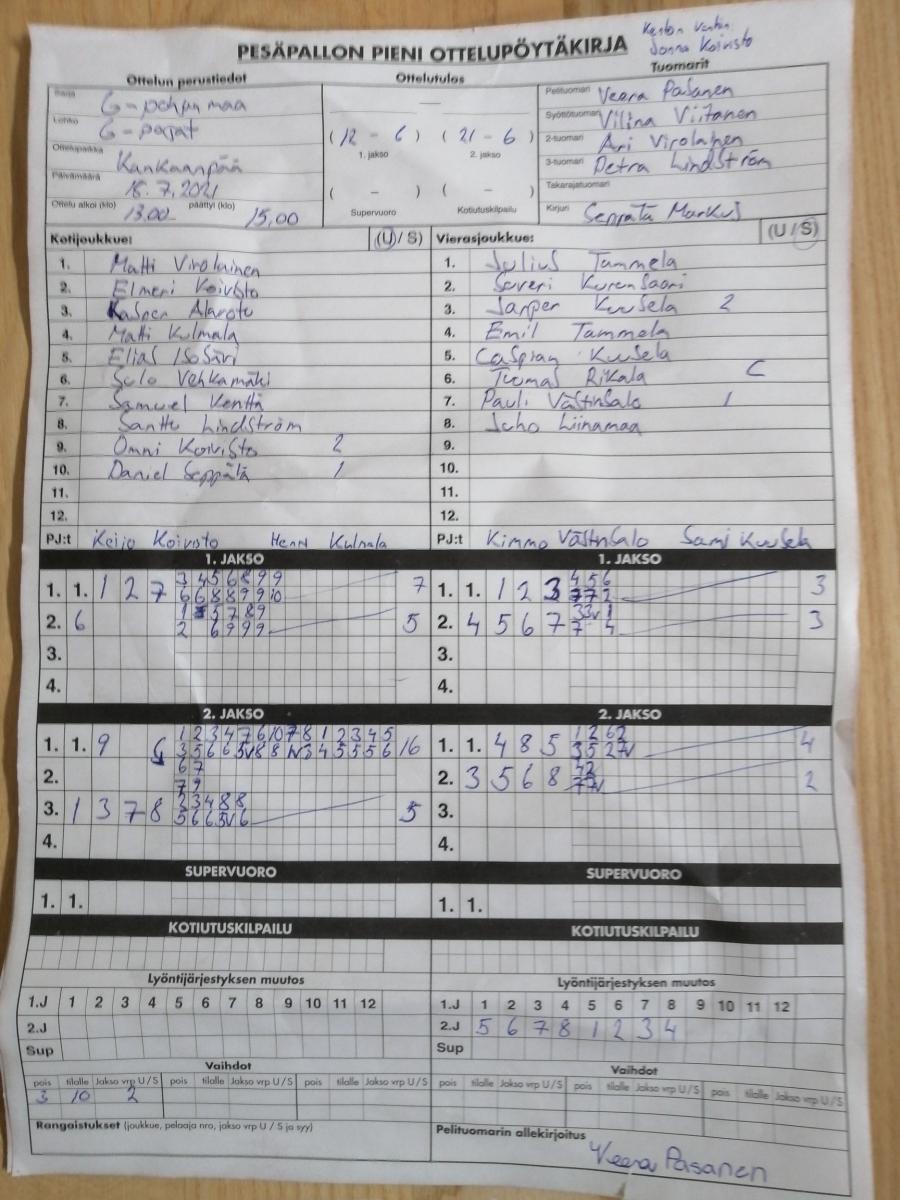 PESÄPALLON PIENI OTTELUPÖYTÄKIRJA
Jonna Koivisto
Ottelun perustiedot
Ottelutulos
Tuomarit
Sarja G-pohjanmaa
Lohko G-pojat
Ottelupaikka Kankaanpää
Päivämäärä 18.7.2021
Ottelu alkoi (klo) 13.00 päättyi (klo) 15,00
( 12 - 6 ) ( 21 - 6 )
1. jakso 2. jakso
( - ) ( - )
Supervuoro Kotiutuskilpailu
Pelituomari Veera Pasanen
Syöttötuomari Vilina Viitanen
2-tuomari Ari Virolainen
3-tuomari Petra Lindström
Takarajatuomari
Kirjuri Seppätä Markus
Kotijoukkue: (U/S)
1. Matti Virolainen
2. Elmeri Koivisto
3. Kasper Alarotu
4. Matti Kulmala
5. Elias Isosävi
6. Sulo Vehkamäki
7. Samuel Kenttä
8. Santtu Lindström
9. Onni Koivisto 2
10. Daniel Seppälä 1
11.
12.
PJ:t Keijo Koivisto Henri Kulmala
Vierasjoukkue: (U/S)
1. Julius Tammela
2. Severi Kurensaari
3. Jasper Kuusela 2
4. Emil Tammela
5. Caspian Kuusela
6. Tuomas Rikala C
7. Pauli Västinsalo 1
8. Juho Liinamaa
9.
10.
11.
12.
PJ:t Kimmo Västinsalo Sami Kuusela
1. JAKSO
1. 1. 1 2 7 3 4 5 6 8 9 9 7
6 6 8 8 9 9 10
2. 6 5
2 6 9 9 9
3.
4.
1. JAKSO
1. 1. 1 2 3 4 5 6 3
7 7 2
2. 4 5 6 7 3
3.
4.
2. JAKSO
1. 1. 9 1 2 3 4 7 6 10 7 8 1 2 3 4 5 16
2. 6 7
7 9
3. 1 3 7 8 2 3 4 8 8 5
4.
2. JAKSO
1. 1. 4 8 5 1 2 6 2 4
2. 3 5 6 8 2
3.
4.
SUPERVUORO
1. 1.
SUPERVUORO
1. 1.
KOTIUTUSKILPAILU
KOTIUTUSKILPAILU
Lyöntijärjestyksen muutos
1.J 1 2 3 4 5 6 7 8 9 10 11 12
2.J
Sup
Lyöntijärjestyksen muutos
1.J 1 2 3 4 5 6 7 8 9 10 11 12
2.J 5 6 7 8 1 2 3 4
Sup
Vaihdot
pois tilalle Jakso vrp U/S pois tilalle Jakso vrp U/S pois tilalle Jakso vrp U/S
3 10 2
Vaihdot
pois tilalle Jakso vrp U/S pois tilalle Jakso vrp U/S pois tilalle Jakso vrp U/S
Rangaistukset (joukkue, pelaaja nro, jakso vrp U / S ja syy)
Pelituomarin allekirjoitus
Veera Pasanen